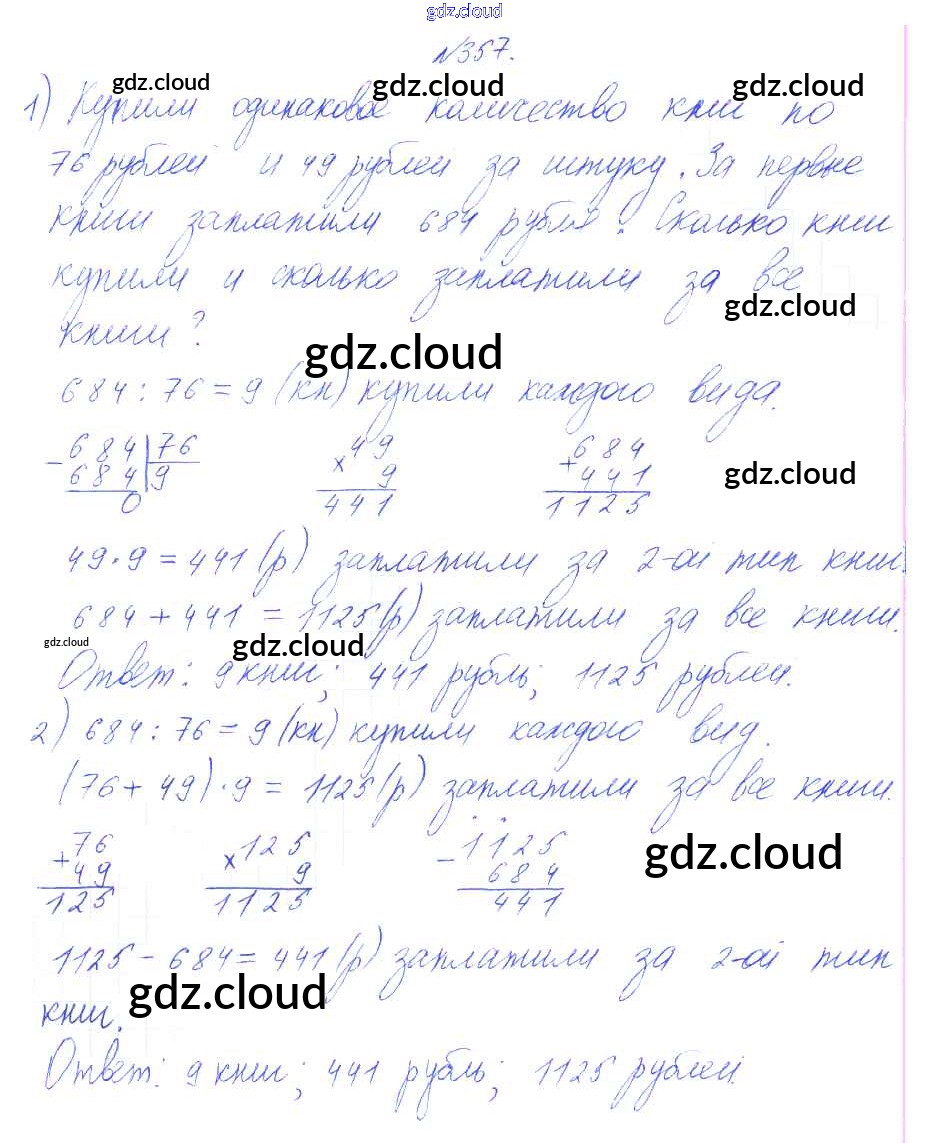 gdz.cloud
№357.
gdz.cloud gdz.cloud gdz.cloud
1) Купили одинаковое количество книг по
76 рублей и 49 рублей за штуку. За первые
книги заплатили 684 рубля? Сколько книг
купили и сколько заплатили за все
gdz.cloud
книги?
gdz.cloud
684 : 76 = 9 (кн) купили каждого вида.
- 684 | 76
684 | 9
0
× 49
9
441
+ 684
441
1125
gdz.cloud
49 · 9 = 441 (р) заплатили за 2-ой тип книг.
684 + 441 = 1125 (р) заплатили за все книги.
gdz.cloud gdz.cloud
Ответ: 9 книг; 441 рубль; 1125 рублей.
2) 684 : 76 = 9 (кн) купили каждого вид.
(76 + 49) · 9 = 1125 (р) заплатили за все книги.
+ 76
49
125
× 125
9
1125
- 1125
684
441
gdz.cloud
1125 - 684 = 441 (р) заплатили за 2-ой тип
книг.
gdz.cloud
Ответ: 9 книг; 441 рубль; 1125 рублей.